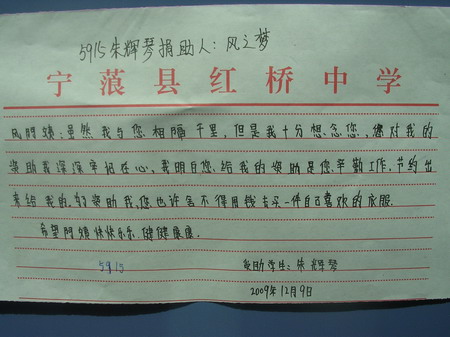 5915朱辉琴捐助人:风之梦
宁蒗县红桥中学
风阿姨:虽然我与您相隔千里,但是我十分想念您,您对我的
资助我深深牢记在心,我明白您给我的资助是您辛勤工作,节约出
来给我的,为资助我,您也许舍不得用钱去买一件自己喜欢的衣服.
希望阿姨快快乐乐 健健康康.
5915
受助学生:朱辉琴
2009年12月9日